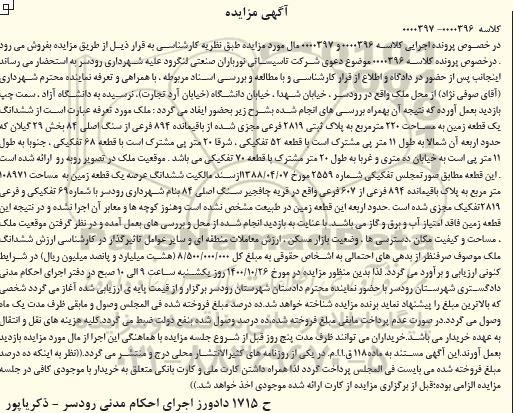 آگهی مزایده
کلاسه ۰۰۰۰۳۹۶- ۰۰۰۰۳۹۷
در خصوص پرونده اجرایی کلاسه ۰۰۰۰۳۹۶و ۰۰۰۰۳۹۷ مال مورد مزایده طبق نظریه کارشناسی به قرار ذیل از طریق مزایده بفروش می رود
. درخصوص پرونده کلاسه ۰۰۰۰۳۹۶ موضوع دعوی شرکت تاسیساتی نورباران صنعتی لنگرود علیه شهرداری رودسر به استحضار می رساند
اینجانب پس از حضور در دادگاه و اطلاع از قرار کارشناسی و با مطالعه و بررسی اسناد مربوطه ، با همراهی و تعرفه نماینده محترم شهرداری
(آقای صوفی نژاد) از محل ملک واقع در رودسر ، خیابان شهدا ، خیابان دانشگاه (خیابان آرد تجارت)، نرسیده به دانشگاه آزاد ، سمت چپ
بازدید بعمل آورده که نتیجه آن بهمراه بررسی های انجام شده بشرح زیر بحضور ایفاد می گردد : ملک مورد تعرفه عبارت است از ششدانگ
یک قطعه زمین به مساحت ۲۲۰ مترمربع به پلاک ثبتی ۲۸۱۹ فرعی مجزی شده از باقیمانده ۸۹۴ فرعی از سنگ اصلی ۸۴ بخش ۲۹ گیلان که
حدود اربعه آن شمالا به طول ۱۱ متر پی مشترک است با قطعه ۵۲ تفکیکی ، شرقا ۲۰ متر پی مشترک است با قطعه ۶۸ تفکیکی ، جنوبا به طول
۱۱ متر پی است به خیابان ده متری و غربا به طول ۲۰ متر مشترک با قطعه ۷۰ تفکیکی می باشد . موقعیت ملک در تصویر روبه رو ارائه شده است
. این قطعه مطابق صورتمجلس تفکیکی شماره ۲۵۵۹ مورخ ۱۳۸۸/۰۴/۰۷ ازسند مالکیت ششدانگ عرصه یک قطعه زمین به مساحت ۱۰۸۹۷۱
متر مربع به پلاک باقیمانده ۸۹۴ فرعی از ۶۰۷ فرعی واقع در قریه چافجیر سنگ اصلی ۸۴ بنام شهرداری رودسر با شماره ۶۹ تفکیکی و فرعی
۲۸۱۹تفکیک مجزی شده است .حدود اربعه این قطعه زمین در طبیعت مشخص نشده است وهنوز کوچه ها و معابر آن اجرا نشده و در نتیجه این
قطعه زمین فاقد امتیاز آب و برق و گاز می باشد. با عنایت به بازدید انجام شده از محل و بررسی های بعمل آمده و در نظر گرفتن موقعیت ملک
، مساحت و کیفیت مکان ،دسترسی ها ، وضعیت بازار مسکن ، ارزش معاملات منطقه ای و سایر عوامل تاثیرگذار در کارشناسی ارزش ششدانگ
ملک موصوف صرفنظر از بدهی های احتمالی به اشخاص حقوقی به مبلغ کل ۸/۵۰۰/۰۰۰/۰۰۰ (هشت میلیارد و پانصد میلیون ریال) در شرایط
کنونی ارزیابی و برآورد می گردد. لذا بدین منظور مزایده در مورخ ۱۴۰۰/۱۰/۲۶ روز یکشنبه ساعت ۹ الی ۱۰ صبح در دفتر اجرای احکام مدنی
دادگستری شهرستان رودسر با حضور نماینده محترم دادستان شهرستان رودسر برگزار و از قیمت پایه ی ارزیابی شده آغاز می گردد شخصی
که بالاترین مبلغ را پیشنهاد نماید برنده مزایده شناخته خواهد شد.ده درصد مبلغ فروخته شده فی المجلس وصول و مابقی ظرف مدت یک ماه
وصول می گردد.در صورت عدم پرداخت مابقی مبلغ فروخته شده،ده درصد وصول شده بنفع دولت ضبط می گردد.کلیه هزینه های نقل و انتقال
به عهده خریدار می باشد.خریداران می توانند ظرف مدت پنج روز قبل از شروع جلسه مزایده با هماهنگی این اجرا از مال مورد مزایده بازدید
بعمل آورند.این آگهی مستند به ماده۱۱۸ق.ا.ا.م. در یکی از روزنامه های کثیرالانتشار محلی درج و منتشر می گردد.((نظر به اینکه ده درصد
مبلغ فروخته شده می بایست فی المجلس پرداخت گردد لذا همراه داشتن کارت ملی و کارت بانکی متعلق به خریدار با موجودی کافی در جلسه
مزایده الزامی بوده؛قبل از برگزاری مزایده از کارت ارائه شده موجودی اخذ خواهد شد.))
ح ۱۷۱۵ دادورز اجرای احکام مدنی رودسر - ذکریاپور